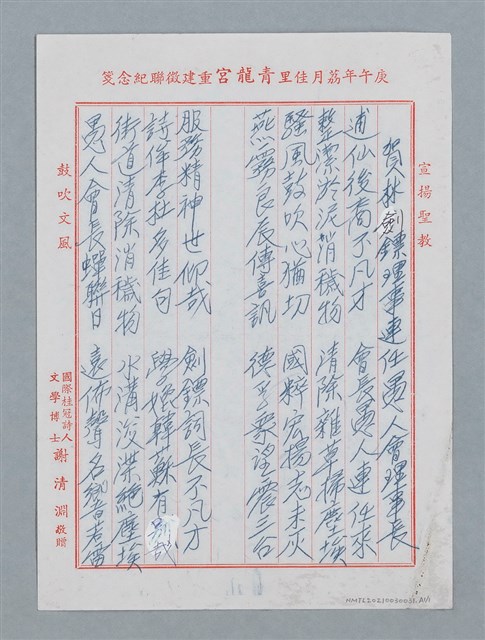 庚午年荔月佳里青龍宮重建徵聯紀念箋
宣揚聖教
賀林劍鏢理事連任愚人會理事長
逋仙後裔不凡才 會長愚人連任來
整潔淤泥消穢物 清除雜草掃塵埃
騷風鼓吹心猶切 國粹宏揚志未灰
燕霧良辰傳喜訊 德孚衆望震三台
服務精神世仰哉 劍鏢詞長不凡才
詩侔李杜多佳句 學媲韓蘇有裁
街道清除消穢物 水溝浚渫絕塵埃
愚人會長蟬聯日 遠佈聲名響若雷
鼓吹文風
國際桂冠詩人
文學博士
謝清淵敬贈